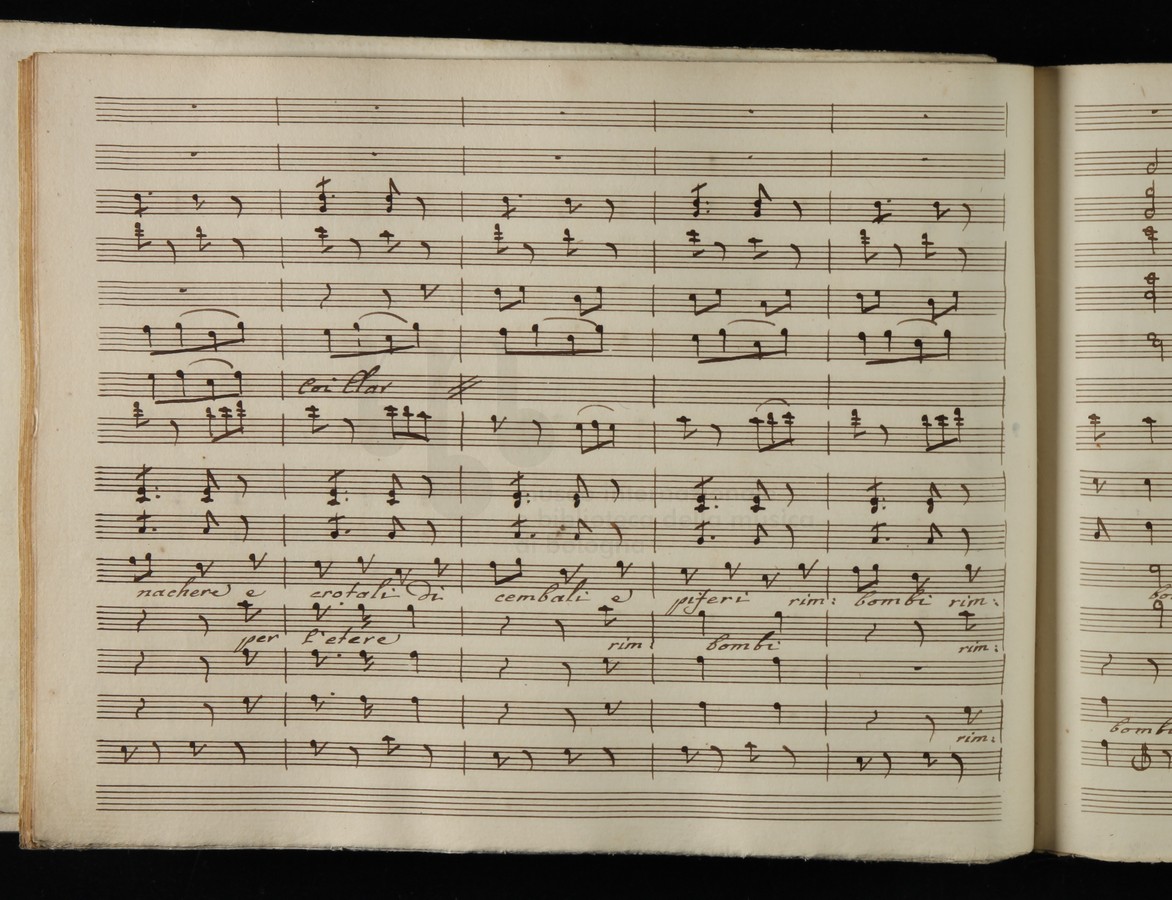 Coi Clar
nachere e crotali di cembali e pifferi rim: bombi rim:
per l'etere rim: bombi rim:
rim:
bombi
museo internazionale
e biblioteca della musica
di bologna